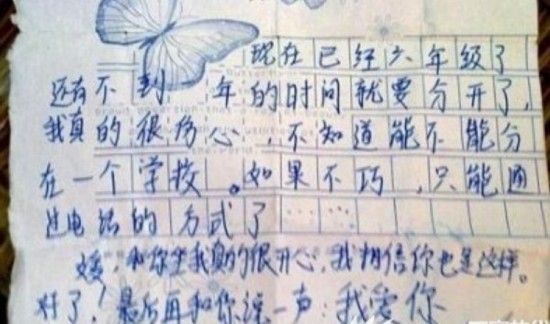 现在已经六年级了
还有不到一年的时间就要分开了,
我真的很伤心,不知道能不能分
在一个学校。如果不巧,只能通
过电话的方式了……
媛,和你坐我真的很开心,我相信你也是这样。
好了!最后再和你说一声:我爱你